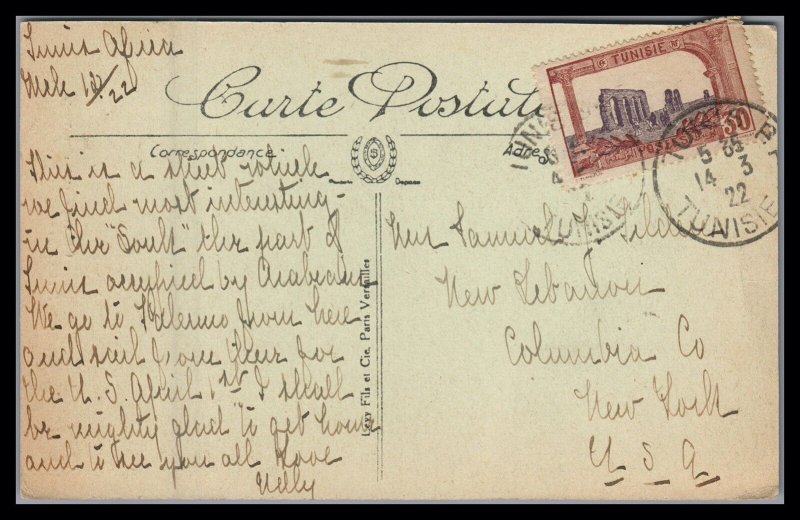 Tunis Africa
Mch 13/22
Carte Postale
Correspondance
Adresse
This is a street vehicle
we find most interesting -
in the "Soulk" the part of
Tunis occupied by Arabians
We go to Palermo from here
and sail from there for
the U. S. April 1st I shall
be mighty glad to get home
and to see you all Love
Nelly
Levy Fils et Cie, Paris Versailles
TUNISIE
POSTES
30
TUNISIE
5 35
14 3
22
TUNISIE
Mrs Samuel J. Tilden
New Lebanon
Columbia Co
New York
U S A